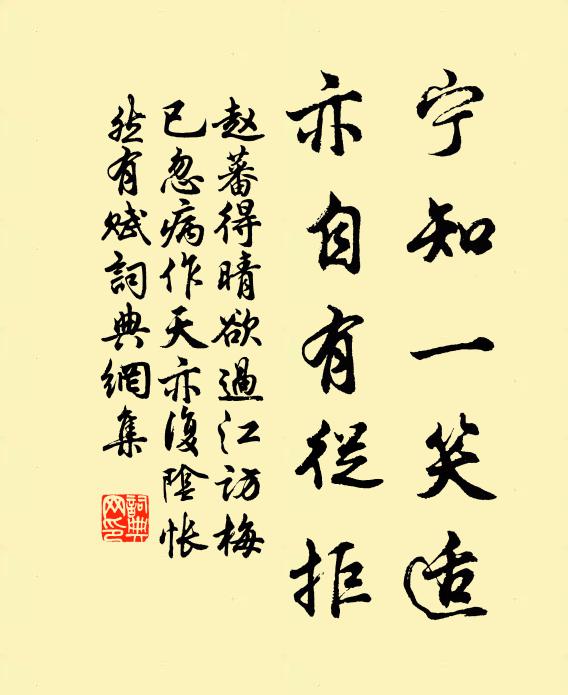 宁知一笑适
亦自有從拒
赵蕃得晴欲過江访梅
已忽病作天亦復陰怅
然有赋詞典網集
詞典
网印